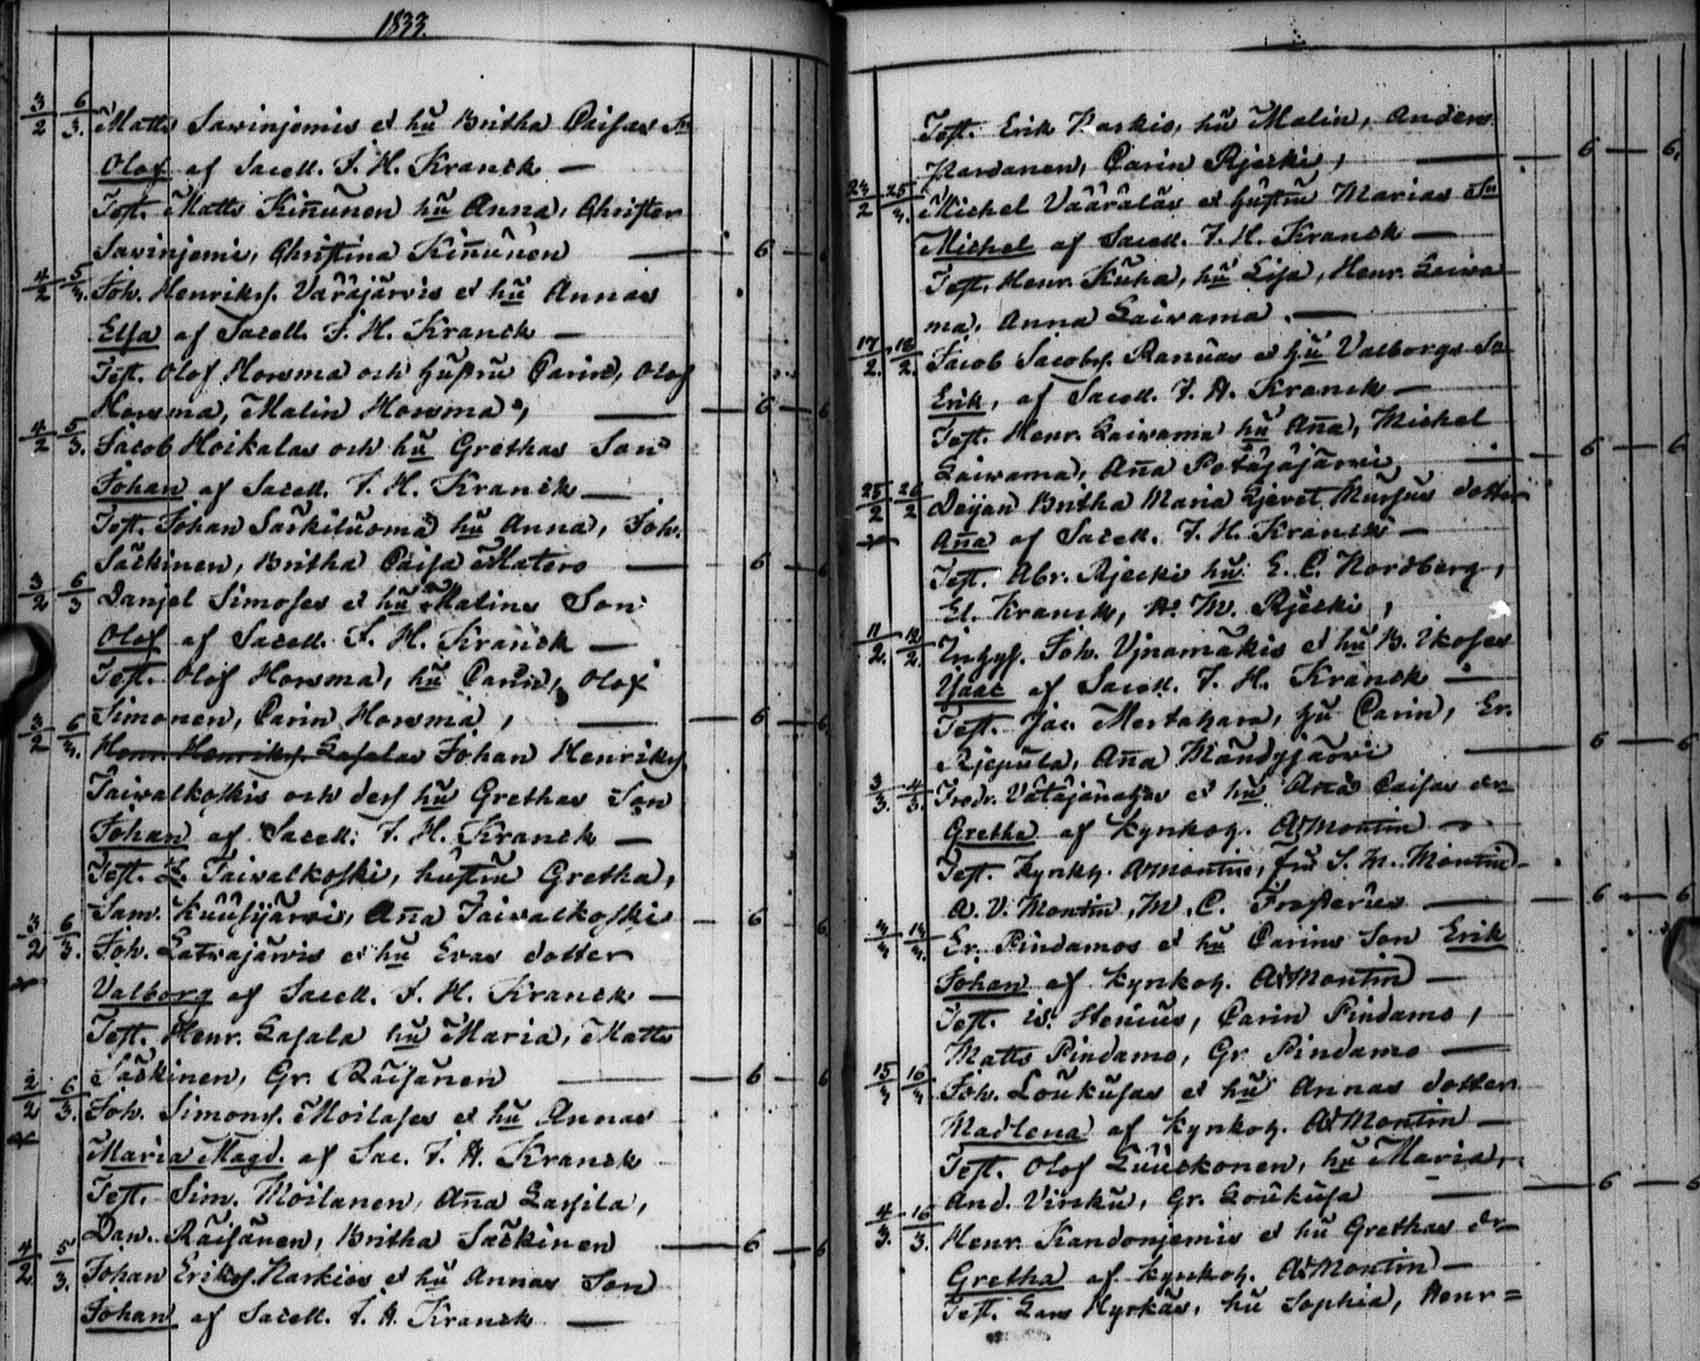 1833.
3/2 6/3. Matts Savinjemis et hu Britha Caisas Sn
Olof af Sacell. J. H. Kranck —
Test. Matts Kiñunen hu Anna, Christer
Savinjemi, Christina Kiñunen — 6 —
4/2 5/3. Joh. Henriks. Varäjärvis et hu Annas
Elsa af Sacell. J. H. Kranck —
Test. Olof Horsma och hustru Carin, Olof
Horsma, Malin Horsma, — 6 — 6
4/2 5/3. Jacob Hoikalas och hu Grethas Son
Johan af Sacell. J. H. Kranck —
Test. Johan Särkiluoma hu Anna, Joh.
Säckinen, Britha Caisa Matero — 6 — 6
3/2 6/3 Danjel Simoses et hu Malins Son
Olof af Sacell. J. H. Kranck —
Test. Olof Horsma, hu Carin, Olof
Simonen, Carin Horsma, — 6 — 6
3/2 6/3. Henr. Henriks. Lasalas Johan Henriks
Taivalkoskis och dess hu Grethas Son
Johan af Sacell. J. H. Kranck —
Test. L. Taivalkoski, hustru Gretha,
Sam. Kuusijärvi, Aña Taivalkoski — 6 — 6
3/2 6/3. Joh. Latvajärvis et hu Evas dotter
Valborg af Sacell. J. H. Kranck —
Test. Henr. Lasala hu Maria, Matts
Säckinen, Gr. Räisänen — 6 — 6
2/2 6/3. Joh. Simons. Moilases et hu Annas
Maria Magd. af Sac. J. H. Kranck
Test. Sim. Moilanen, Aña Lassila,
Dan. Räisänen, Britha Säckinen — 6 — 6
4/2 5/3. Johan Eriks. Karkios et hu Annas Son
Johan af Sacell. J. H. Kranck —
Test. Erik Karkio, hu Malin, Anders
Pardanen, Carin Rjecki, — 6 — 6.
24/2 25/3. Michel Väärälas et hustru Marias Sn
Michel af Sacell. J. H. Kranck —
Test. Henr. Kuha, hu Lisa, Henr. Laiva
ma, Anna Laivama. —
17/2. 18/2. Jacob Jacobs. Ranuas et hu Valborgs So
Erik, af Sacell. J. H. Kranck —
Test. Henr. Laivama hu Aña, Michel
Laivama, Aña Potäjäjärvi, — 6 — 6
25/2 26/2 Deijan Britha Maria Mursus dotter
Aña af Sacell. J. H. Kranck —
Test. Abr. Rjecki hu: E. C. Nordberg,
El. Kranck, A. M. Rjecki,
11/2. 12/2. Joh. Vjnamäkis et hu B. Ikoses
Isaac af Sacell. J. H. Kranck —
Test. Jac. Mertahara, hu Carin, Er.
Rjepula, Aña Mändyjärvi — 6 — 6
3/3. 4/3. Fredr. et hu Caisas dr
Gretha af Kyrkoh. Ad Montin —
Test. Kyrkh. Ad Montin, fru S. M. Montin
A. V. Montin, M. C. Frosterus — 6 — 6
Er. Pindamos et hu Carins Son Erik
Johan af Kyrkoh. Ad Montin —
Test. Is. Henius, Carin Pindamo,
Matts Pindamo, Gr. Pindamo —
15/3 16/3 Joh. Loukusas et hu Annas dotter
Madlena af Kyrkoh. Ad Montin —
Test. Olof Luuskonen, hu Maria,
And. Virku, Gr. Loukusa — 6 — 6
4/3. 16/3. Henr. Kandonjemis et hu Grethas dr
Gretha af Kyrkoh. Ad Montin —
Test. Lars Hyrkäs, hu Sophia, Henr=